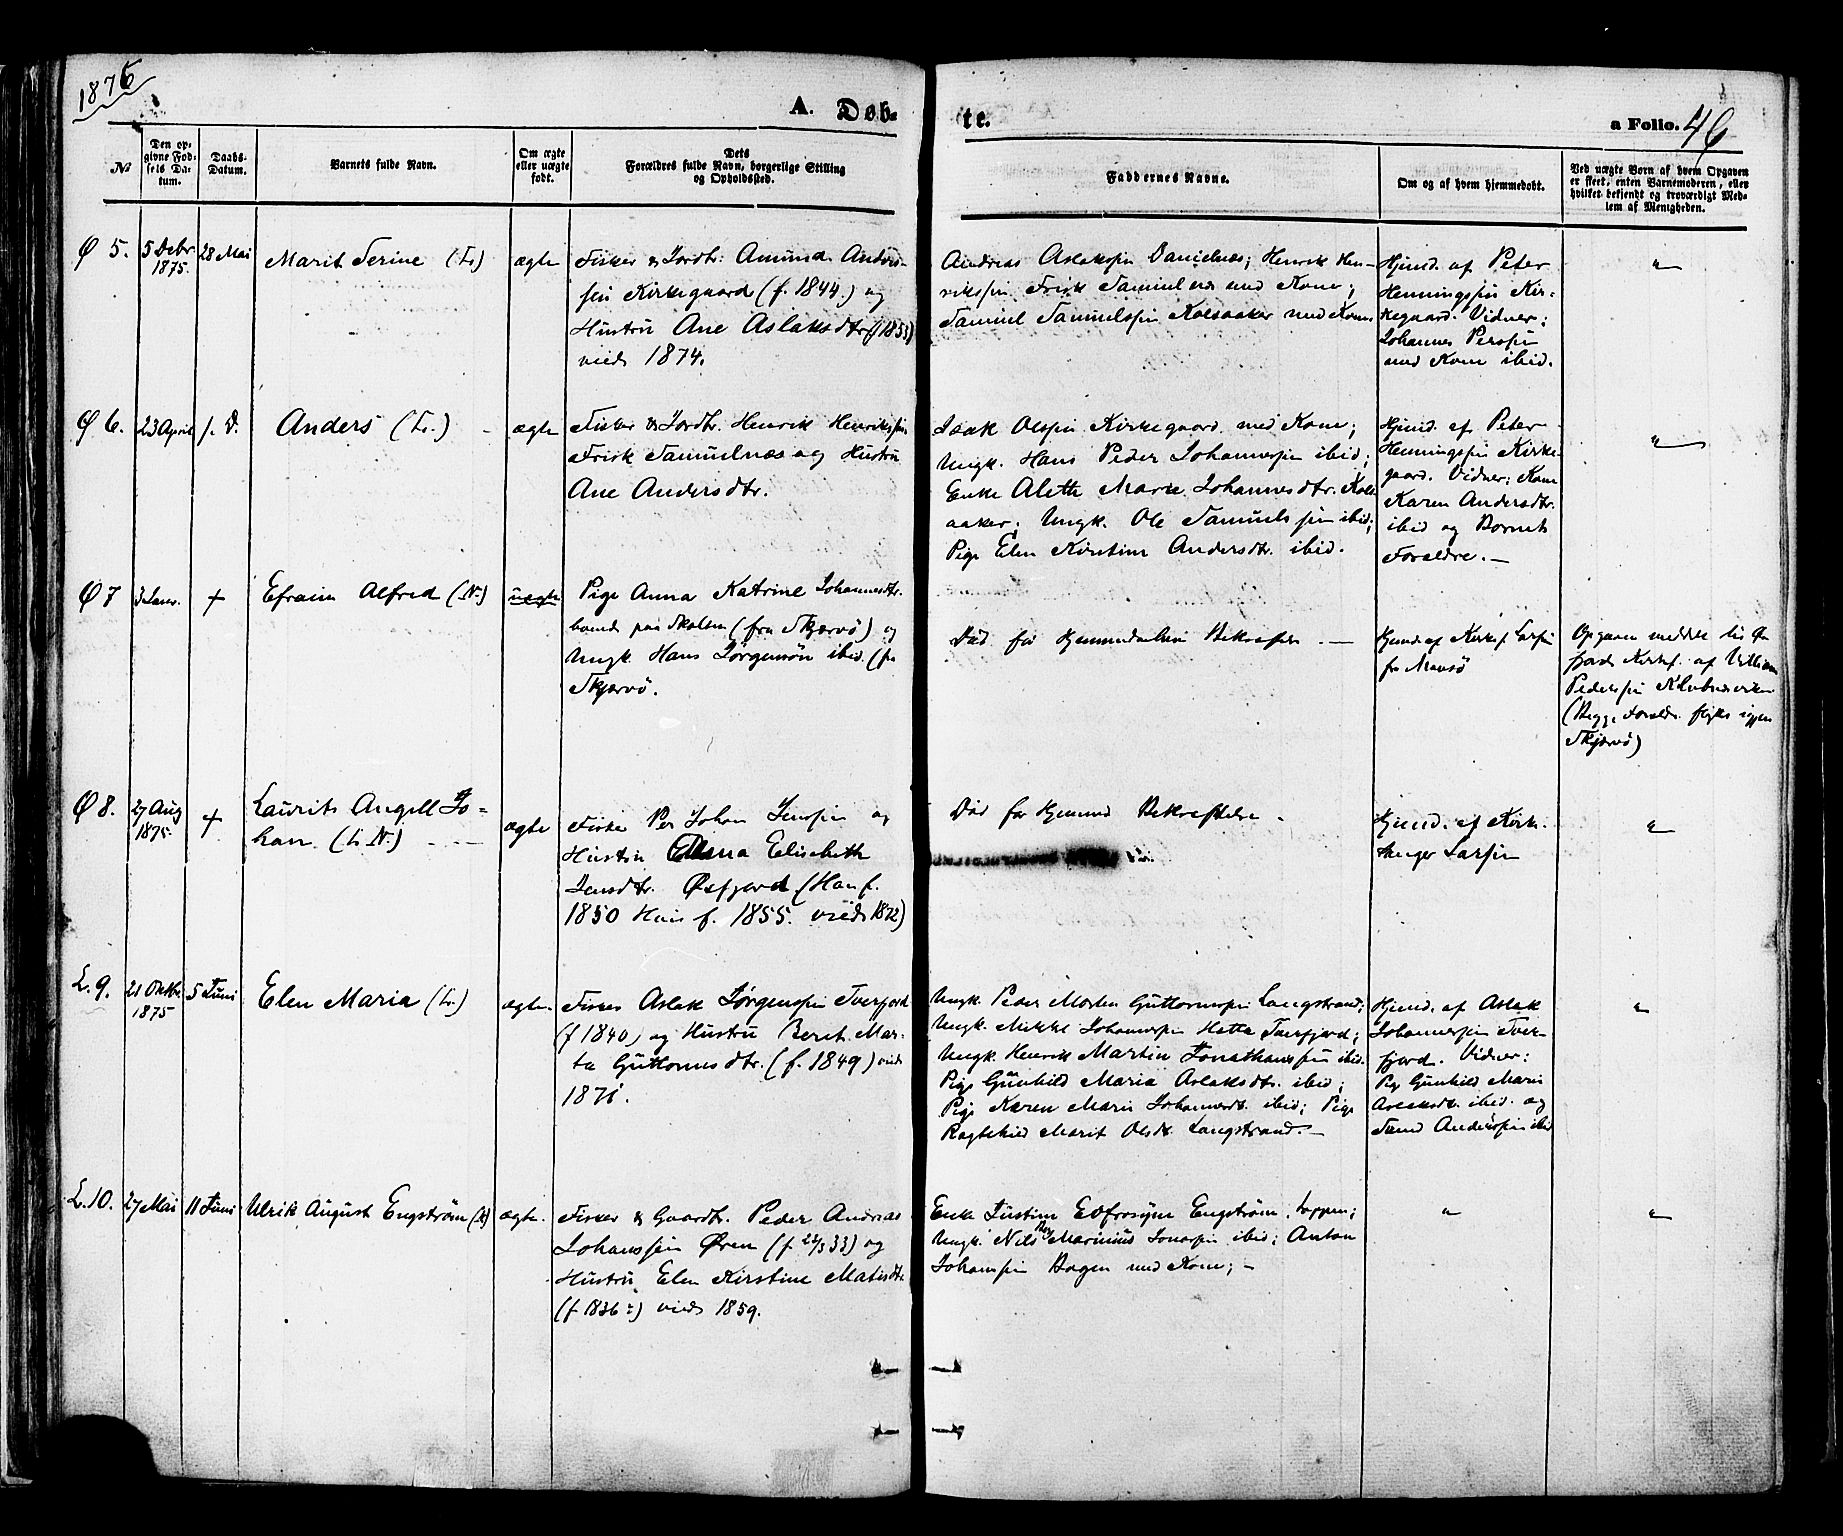 1876
A. Døb-
te.
a Folio. 46
№
Den op-
givne Fød-
sels Da-
tum.
Daabs-
Datum.
Barnets fulde Navn.
Om ægte
eller uægte
født.
Dets
Forældres fulde Navn, borgerlige Stilling
og Opholdssted.
Faddernes Navne.
Om og af hvem hjemmedøbt.
Ved uægte Børn af hvem Opgaven
er skeet, enten Barnemoderen, eller
hvilket bekjendt og troværdigt Med-
lem af Menigheden.
Ø 5.
5 Debr
1875.
28 Mai
Marit Serine (L.)
ægte
Fisker & Jordbr: Amund Anders-
sen Kirkegaard (f. 1844.) og
Hustru Ane Aslaksdtr (f 1853)
viede 1874.
Andreas Aslaksen Danielnæs; Henrik Hen-
riksen Frisk Samuelnæs med Kone;
Samuel Samuelssen Kolsaaker med Kone.
Hjemd. af Peter
Henningssen Kir-
kegaard. Vidner:
Johannes Persen
med Kone ibid.
"
Ø 6.
23 April
s. D.
Anders (L.)
ægte
Fisker & Jordbr. Henrik Henrikssen
Frisk Samuelnæs og Hustru
Ane Andersdtr.
Isak Olsen Kirkegaard med Kone;
Ungk. Hans Peder Johannesen ibid;
Enke Aleth Marie Johannesdtr. Kols
aaker; Ungk. Ole Samuelssen ibid;
Pige Elen Kirstine Andersdtr. ibid.
Hjemd. af Peter
Henningssen Kirke-
gaard. Vidner: Kone
Karen Andersdtr.
ibid og Barnets
Foreldre. —
"
Ø 7
3 Janr.
+
Efraim Alfred (N.)
uægte
Pige Anna Katrine Johannesdtr.
boende paa Skolten (fra Skjærvö) og
Ungk. Hans Jörgensön ibid. (fr
Skjærvö.
Död før Hjemmedaabens Bekræftelse —
Hjemd. af Kirkes. Larsen
fr Maasö
Opgaven meddelt
Kirkes. af William
Pedersen
(Begge Foreldr. igjen
Skjærvö)
Ø 8.
27 Aug
1875.
+
Laurits Angell Jo-
han. (L. N.)
ægte
Fisker Per Johan Jenssen og
Hustru Elena Elisabeth
Jensdtr. Öxfjord (Han f.
1850 Hun f. 1855. viede 1872)
Död før Hjemmed Bekræftelse.
Hjemd. af Kirke-
sanger Larsen
"
L. 9.
21 Oktbr
1875
5 Juni
Elen Maria (L.)
ægte.
Fisker Aslak Jörgenssen Tverfjord
(f 1840) og Hustru Berit Mar-
ta Guttormsdtr. (f. 1849) viede
1871.
Ungk. Peder Morten Guttormsen Langstrand;
Ungk. Mikkel Johannesen Hætta Tverfjord;
Ungk Henrik Martin Jonathanssen ibid.
Pige Gunhild Maria Aslaksdtr. ibid;
Pige Karen Marie Johannesdt. ibid; Pige
Ragnhild Marit Olsdt. Langstrand. —
Hjemd. af Aslak
Johannessen Tver-
fjord. Vidner:
Pig Gunhild Maria
Aslaksdt. ibid. og
Anderssen ibid
"
L. 10.
27 Mai
11 Juni
Ulrik August Engström (K)
ægte.
Fisker & Gaardbr. Peder Andreas
Johanssen Øren (f 24/3 33) og
Hustru Elen Kirstine Matisdtr
(f 1836:) viede 1859.
Enke Justine Eofrosyne Engström. Loppen;
Ungk. Nils Marinius Jonassen ibid; Anton
Johansen Bogen med Kone; —
"
"